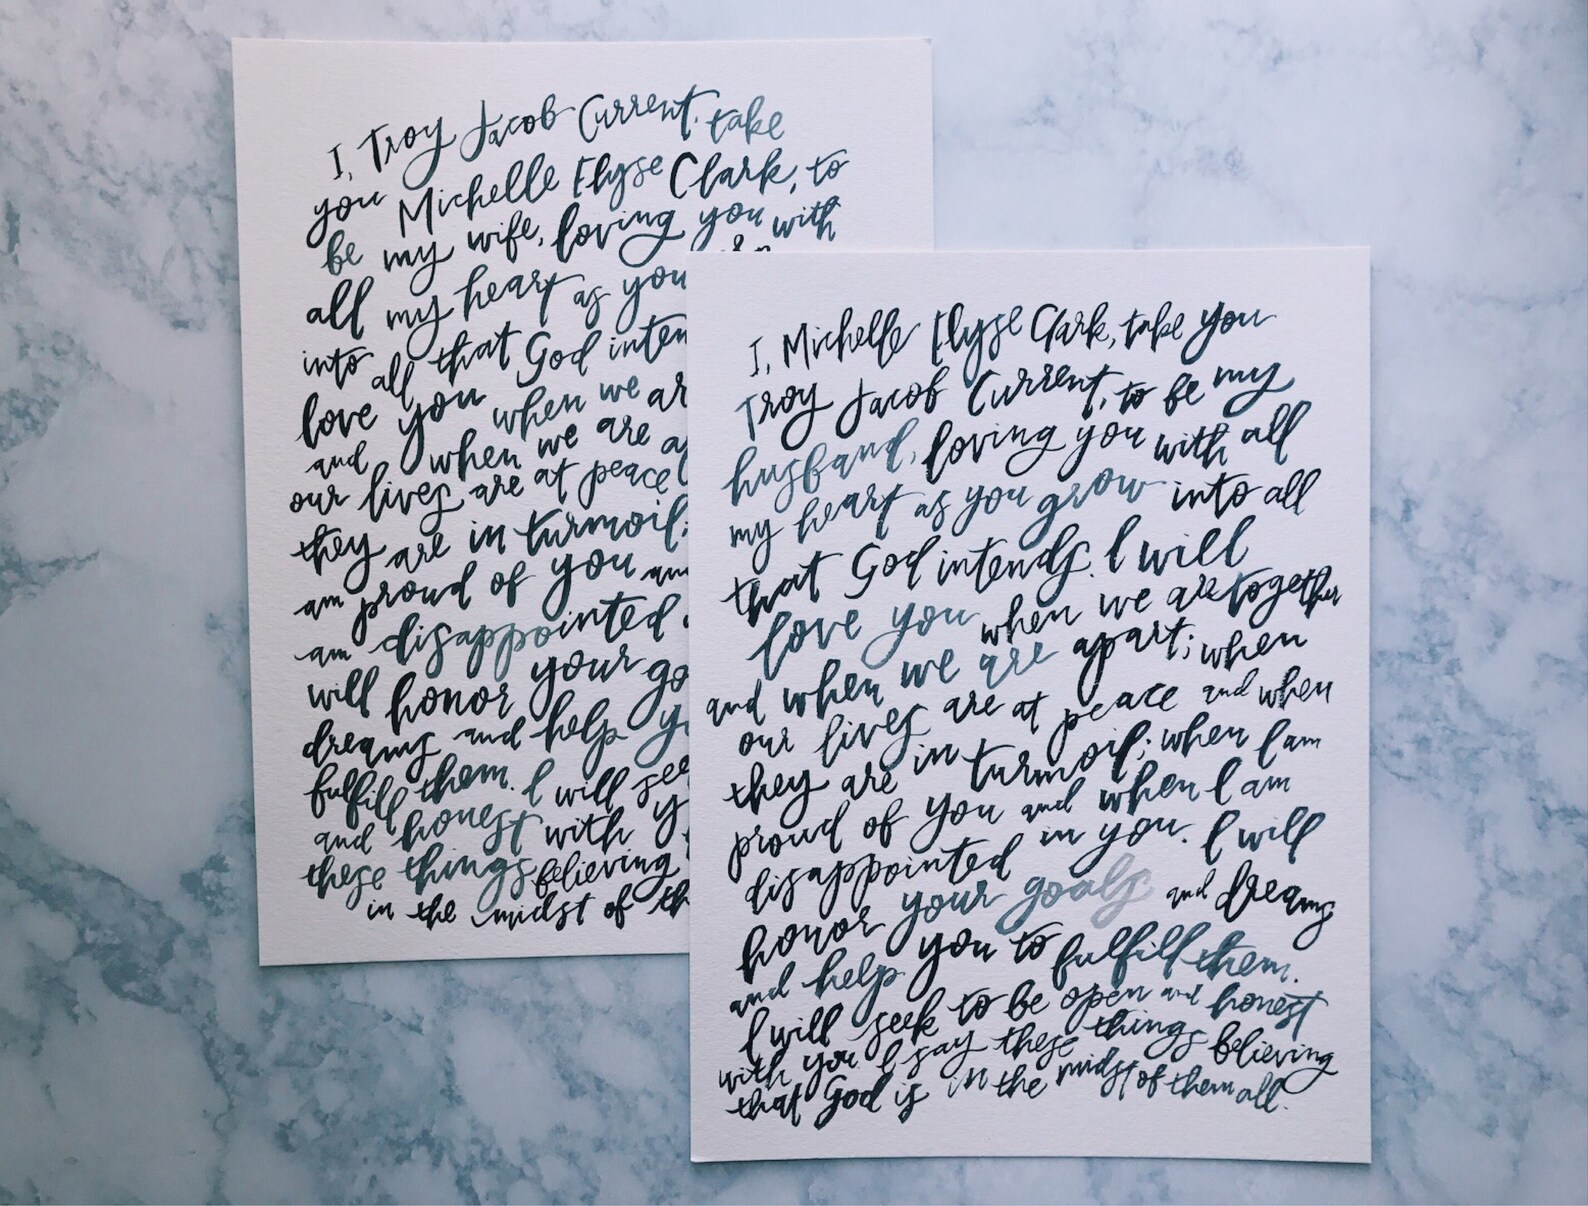 I, Troy Jacob Current, take
you Michelle Elyse Clark, to
be my wife, loving you with
all my heart as you
into all that God inten
love you when we ar
and when we are a
our lives are at peace
they are in turmoil;
am proud of you an
am disappointed
will honor your go
dreams and help y
fulfill them. I will see
and honest with y
these things believing
in the midst of th
I, Michelle Elyse Clark, take you
Troy Jacob Current, to be my
husband, loving you with all
my heart as you grow into all
that God intends. I will
love you when we are together
and when we are apart; when
our lives are at peace and when
they are in turmoil; when I am
proud of you and when I am
disappointed in you. I will
honor your goals and dreams
and help you to fulfill them.
I will seek to be open and honest
with you I say these things believing
that God is in the midst of them all.